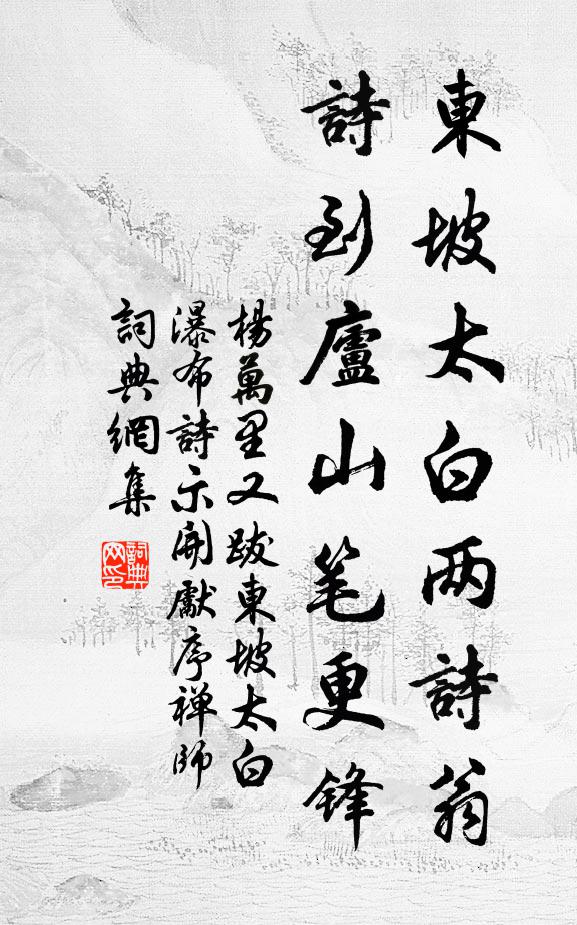 東坡太白两詩翁
詩到廬山笔更锋
楊萬里又跋東坡太白
瀑布詩示開獻序禅師
詞典網集
詞典
网印